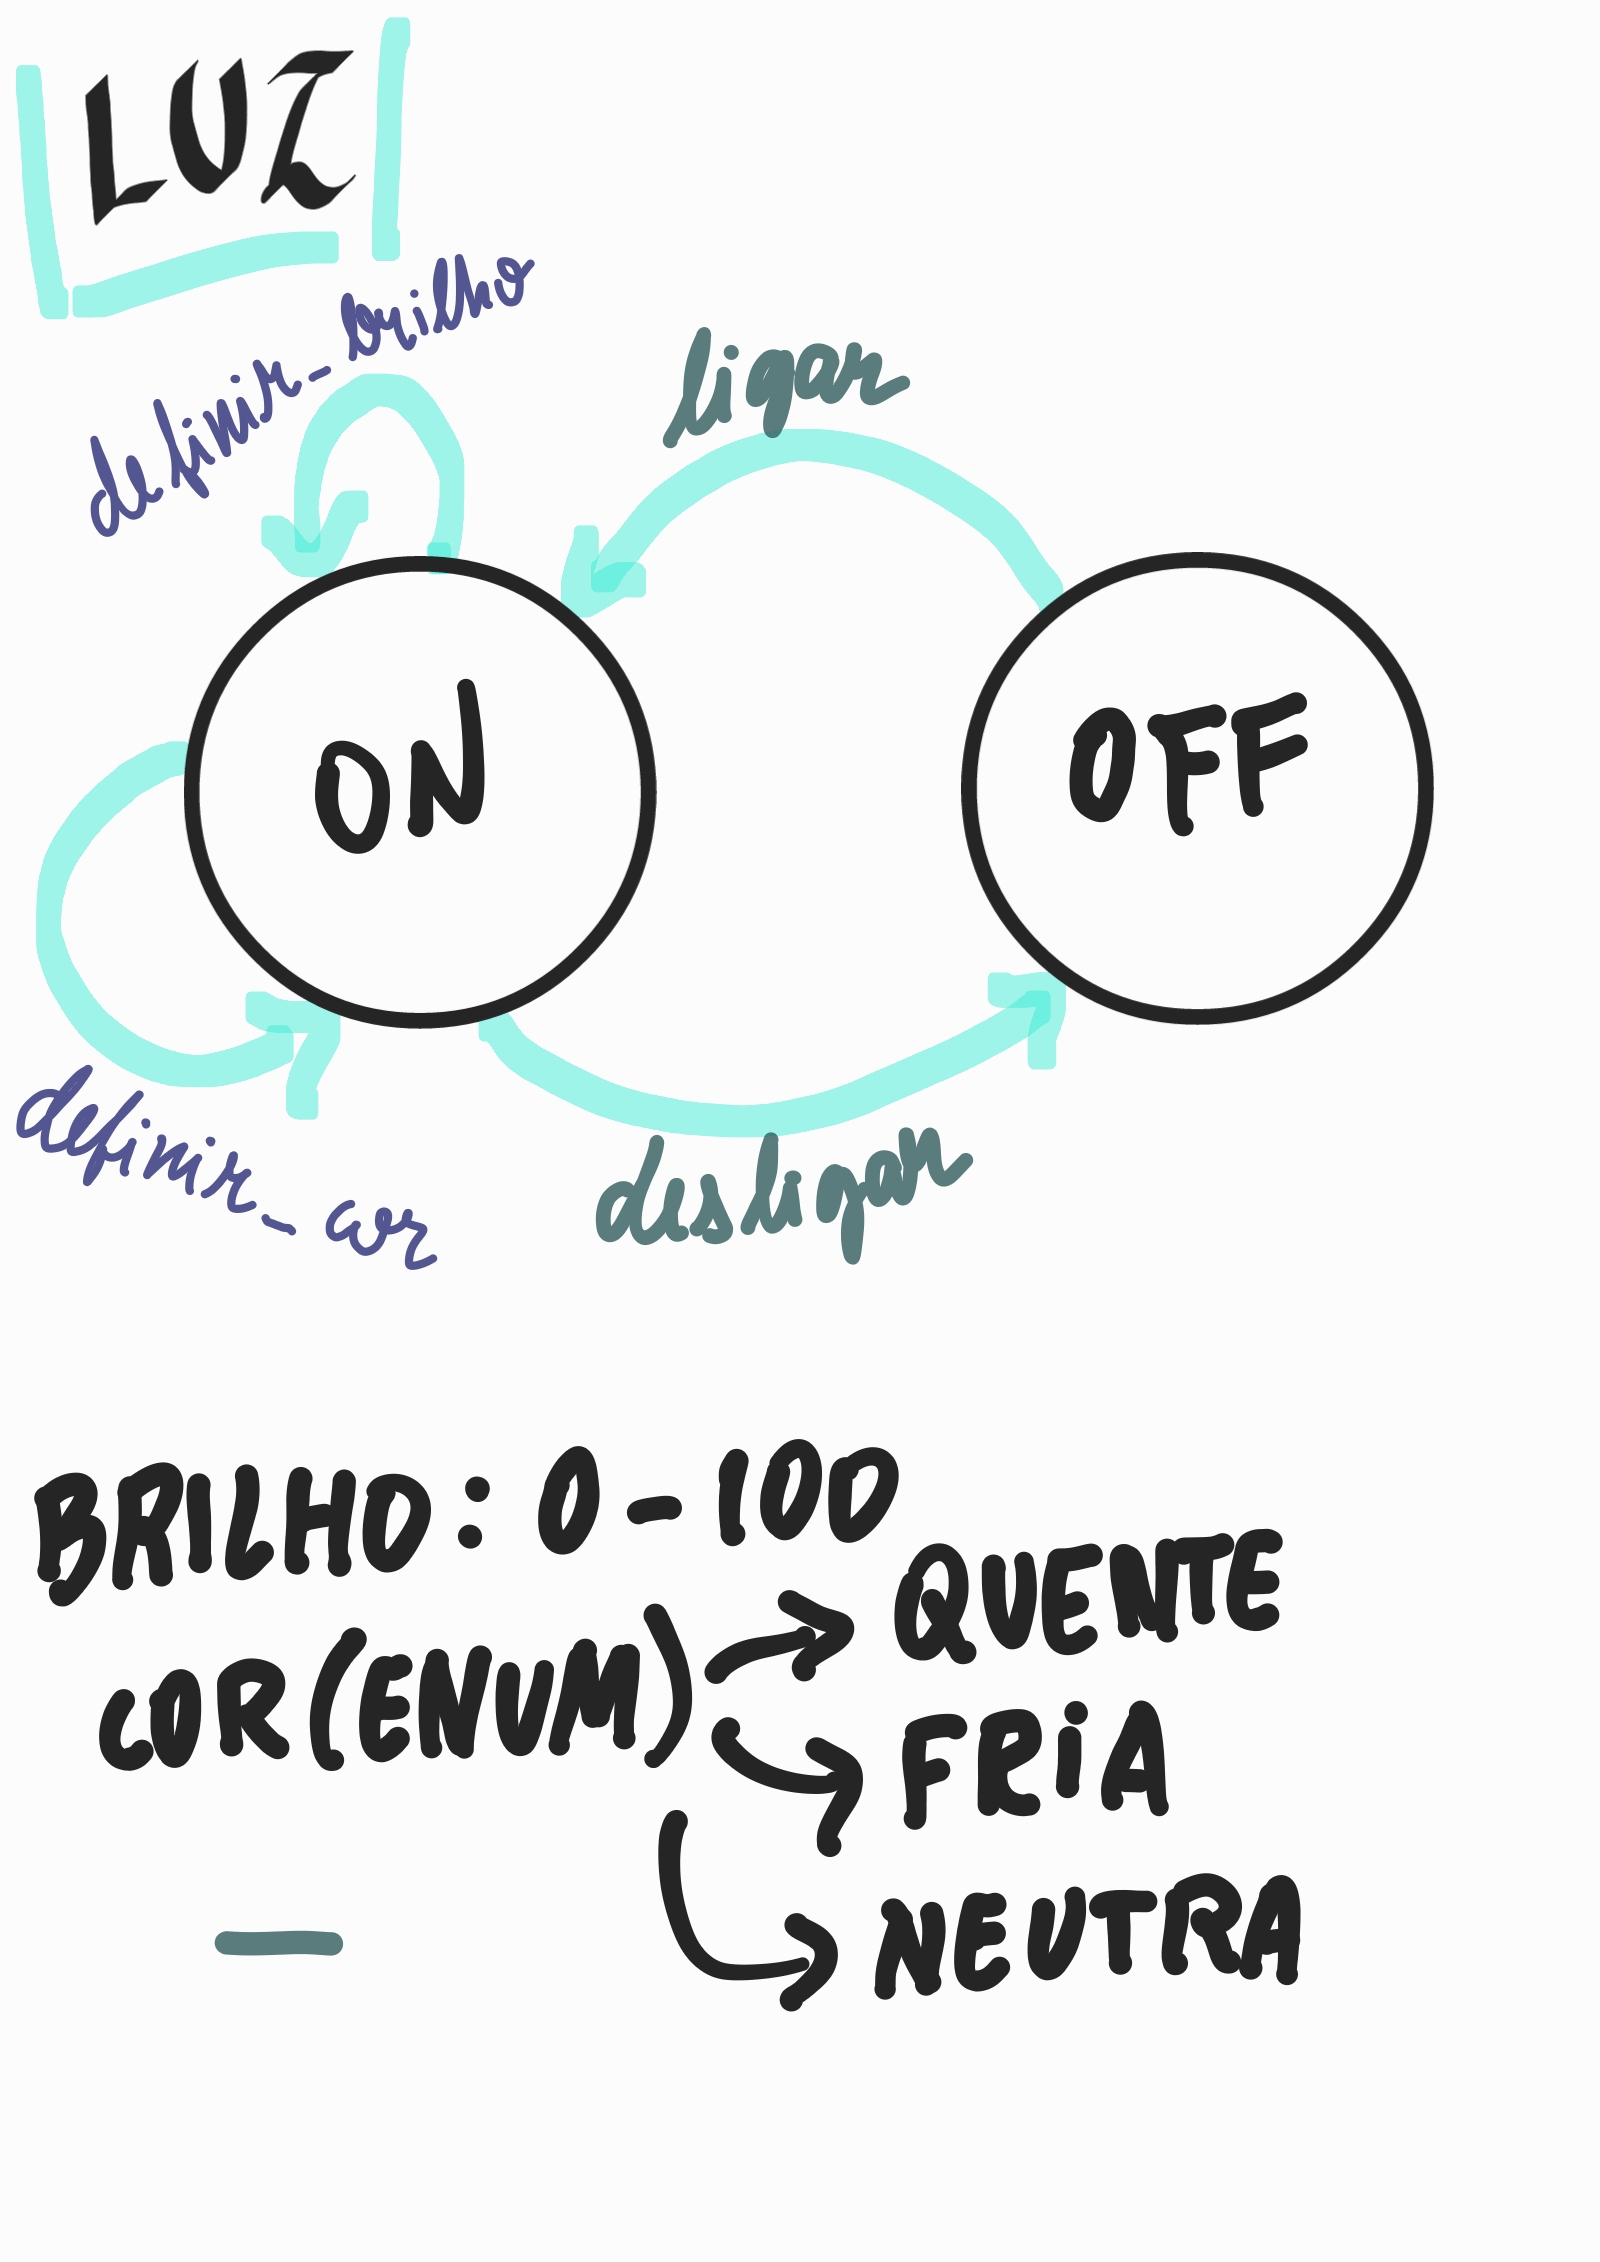 LUZ
definir_brilho
ligar
ON
OFF
definir_cor
desligar
BRILHO: 0-100
COR(ENUM)
QUENTE
FRIA
NEUTRA